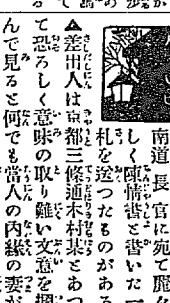 南道長官に宛て麗々
しく陳情書と書いた一
札を送つたものがある
▲差出人は京都三條通木村某とあつ
て恐ろしく意味の取り難い文意を
んで見ると何でも當人の內緣の妻が